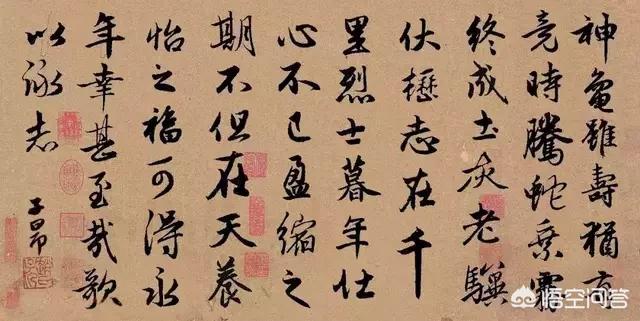 神龜雖壽猶有
竟時騰蛇乗霧
終成土灰老驥
伏櫪志在千
里烈士暮年壮
心不已盈縮之
期不但在天養
怡之福可得永
年幸甚至哉歌
以詠志
子昂
悟空问答